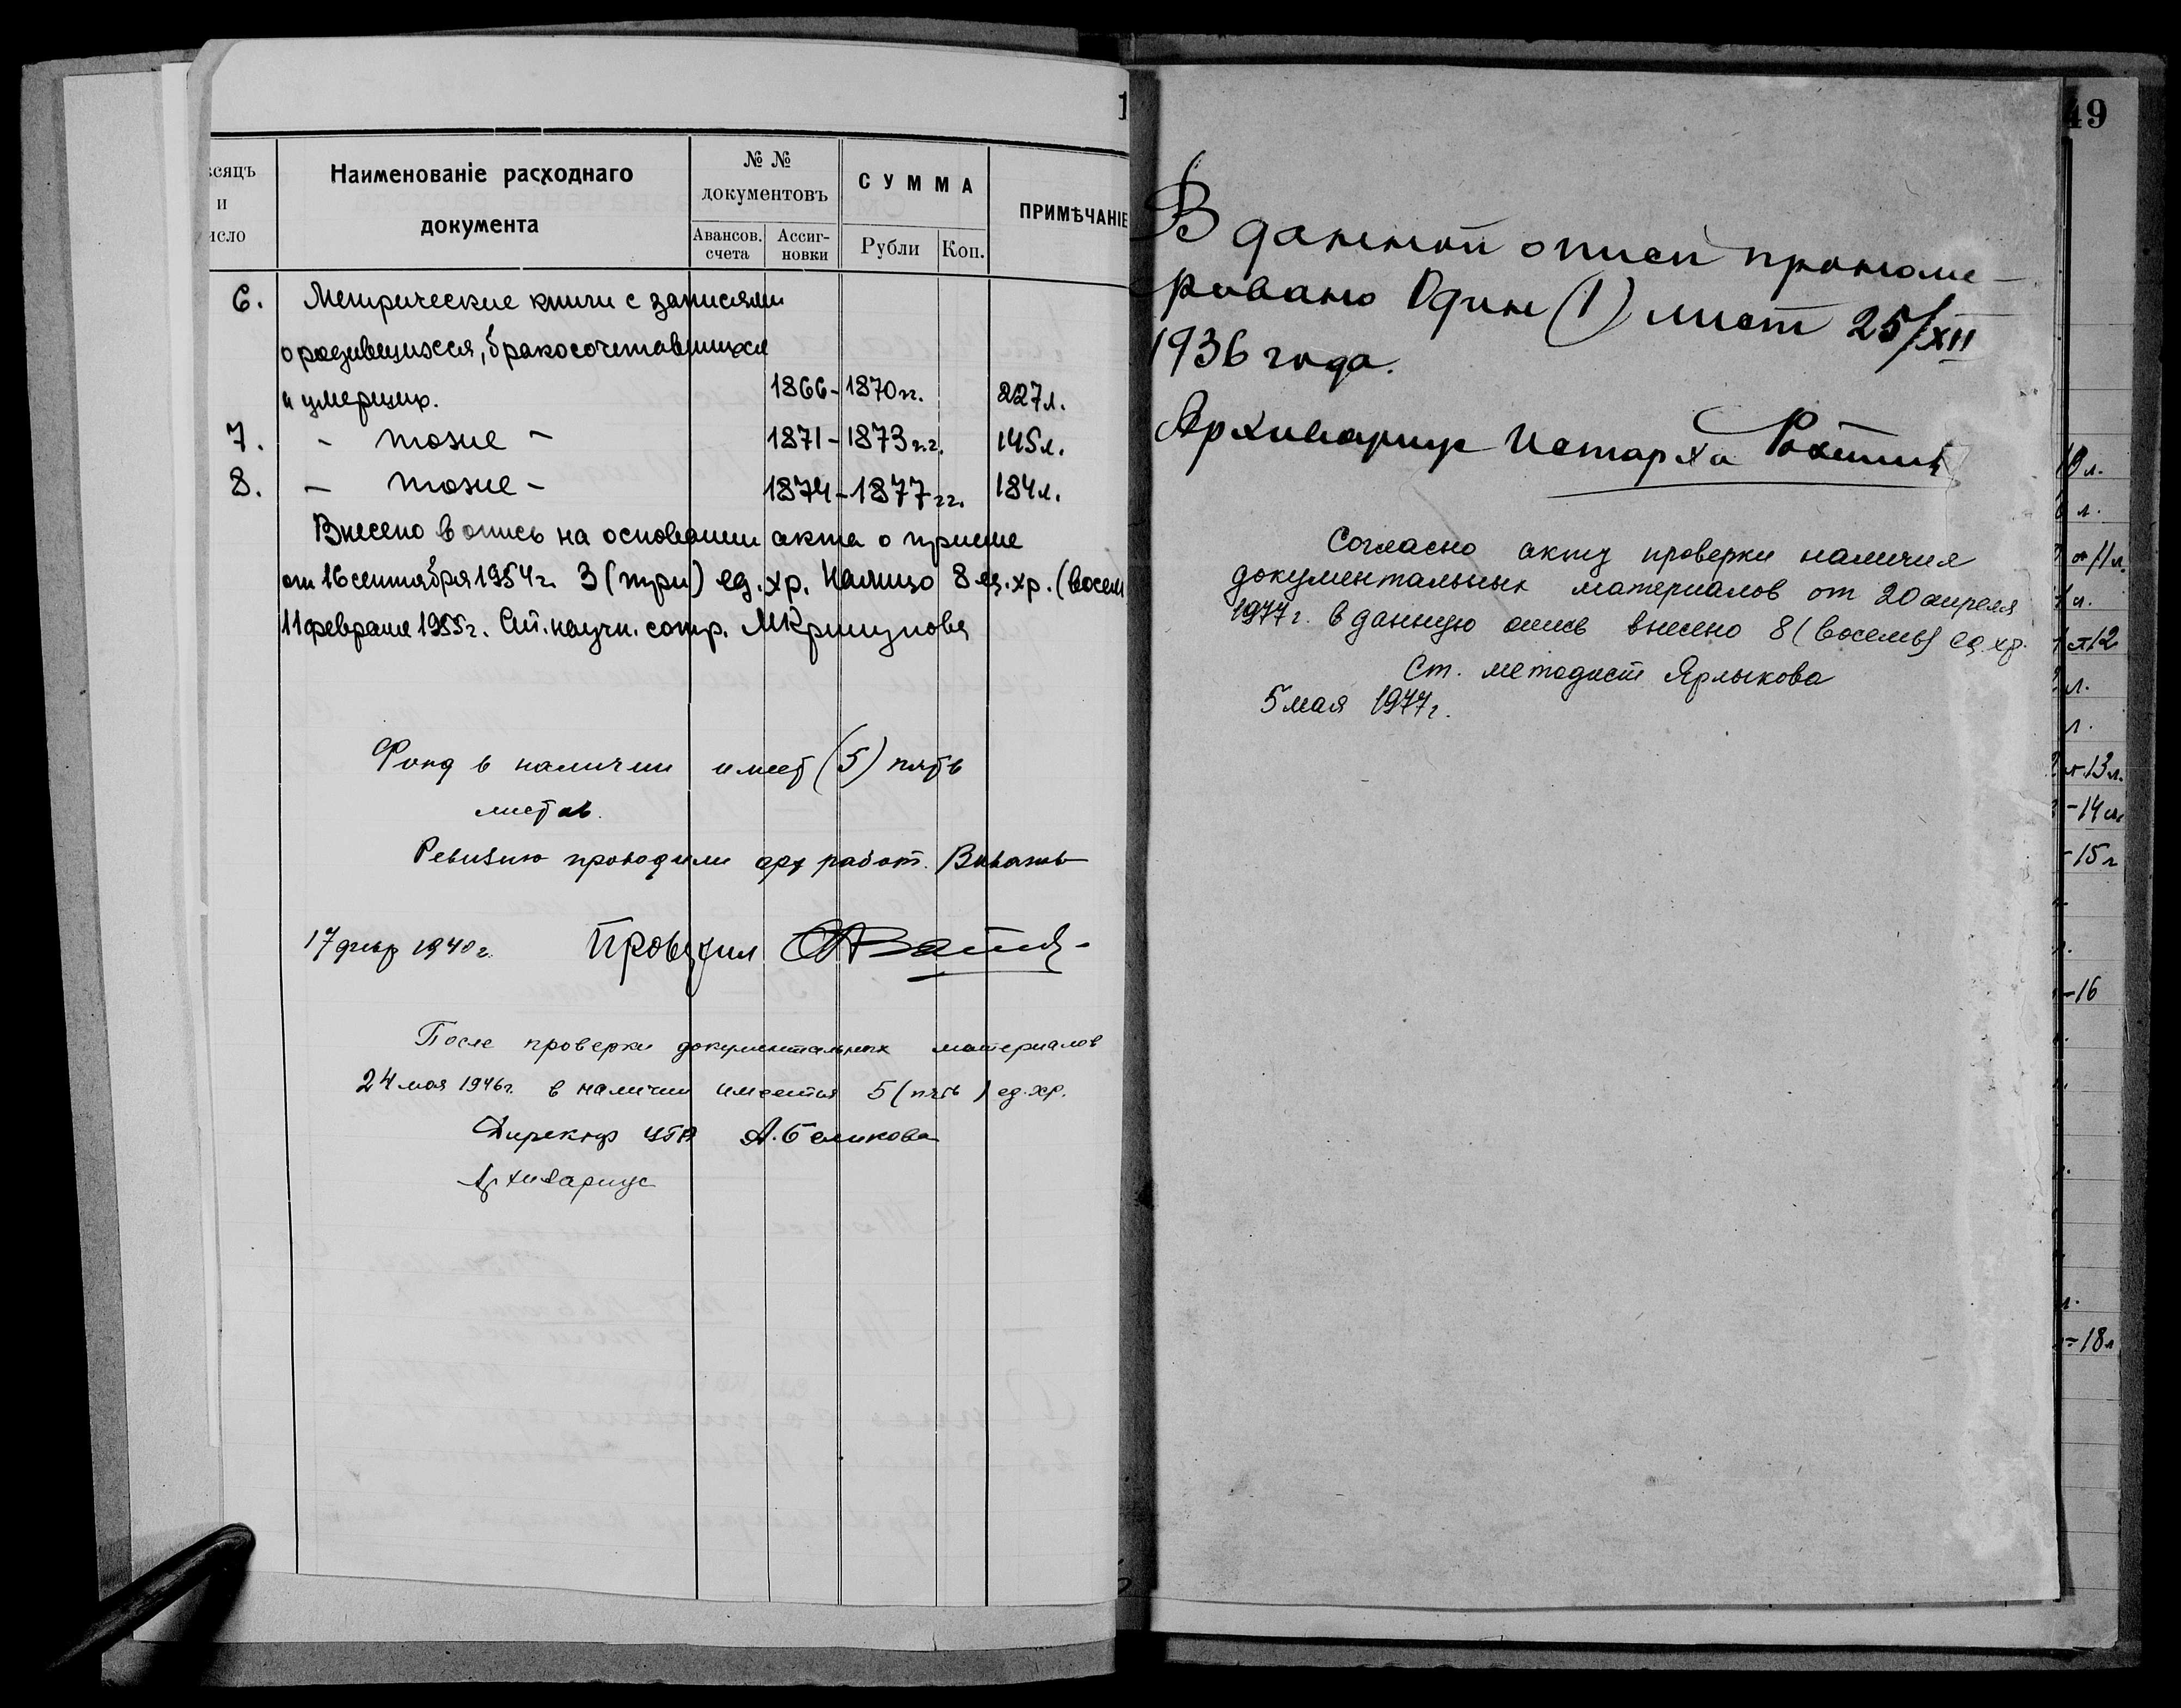 1
сяцъ
и
исло
Наименованіе расходнаго
документа
№ №
документовъ
Авансов.
счета
Ассиг-
новки
СУММА
Рубли
Коп.
ПРИМѢЧАНІЕ
6. Метрические книги с записями
о родившихся, бракосочетавшихся
и умерших. 1866-1870 гг. 227 л.
7. - тоже - 1871-1873 г.г. 145 л.
8. - тоже - 1874-1877 гг. 184 л.
Внесено в опись на основании акта о приеме
от 16 сентября 1954 г. 3 (три) ед. хр. Налицо 8 ед. хр. (восем
11 февраля 1955 г. Ст. научн. сотр.
Фонд в наличии имеет (5) пять
листов.
Ревизию проводили арх работ.
17 февр 1940 г.
После проверки документальных материалов
24 мая 1946 г. в наличии имеется 5 (пять) ед. хр.
Директор А. Беликова
Архивариус
В данной описи прономе-
ровано Один (1) лист 25/XII
1936 года.
Архивариус Истарха
Согласно акту проверки наличия
документальных материалов от 20 апреля
1977 г. в данную опись внесено 8 (восемь) ед. хр.
Ст. методист Ярлыкова
5 мая 1977 г.
49
10 л.
л.
11 л.
л.
12
л.
л.
13 л.
-14 л.
-15 л
-16
л.
-18 л